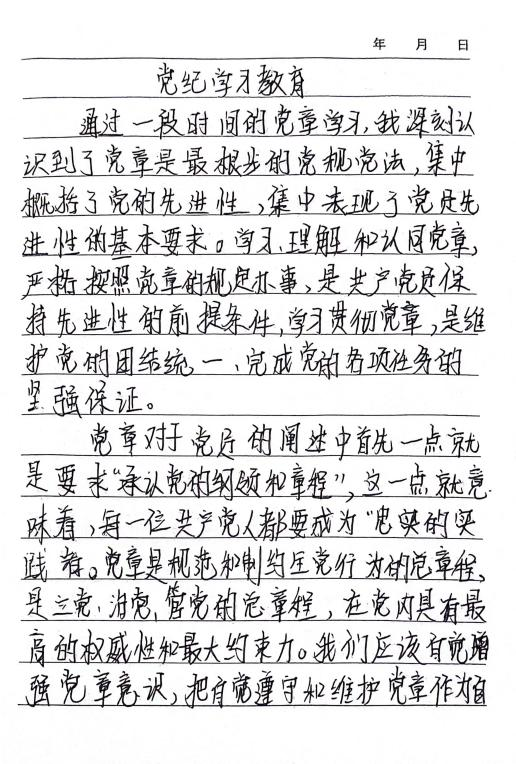 年 月 日
党纪学习教育
通过一段时间的党章学习,我深刻认
识到了党章是最根步的党规党法,集中
概括了党的先进性,集中表现了党员先
进性的基本要求。学习、理解和认同党章,
严格按照党章的规定办事、是共产党员保
持先进性的前提条件,学习贯彻党章,是维
护党的团结统一、完成党的各项任务的
坚强保证。
党章对于党员的阐述中首先一点就
是要求“承认党的纲领和章程”,这一点就意
味着,每一位共产党人都要成为“忠实的实
践者。党章是规范和制约全党行为的总章程,
是立党、治党、管党的总章程,在党内具有最
高的权威性和最大约束力。我们应该自觉增
强党章意识,把自觉遵守和维护党章作为自